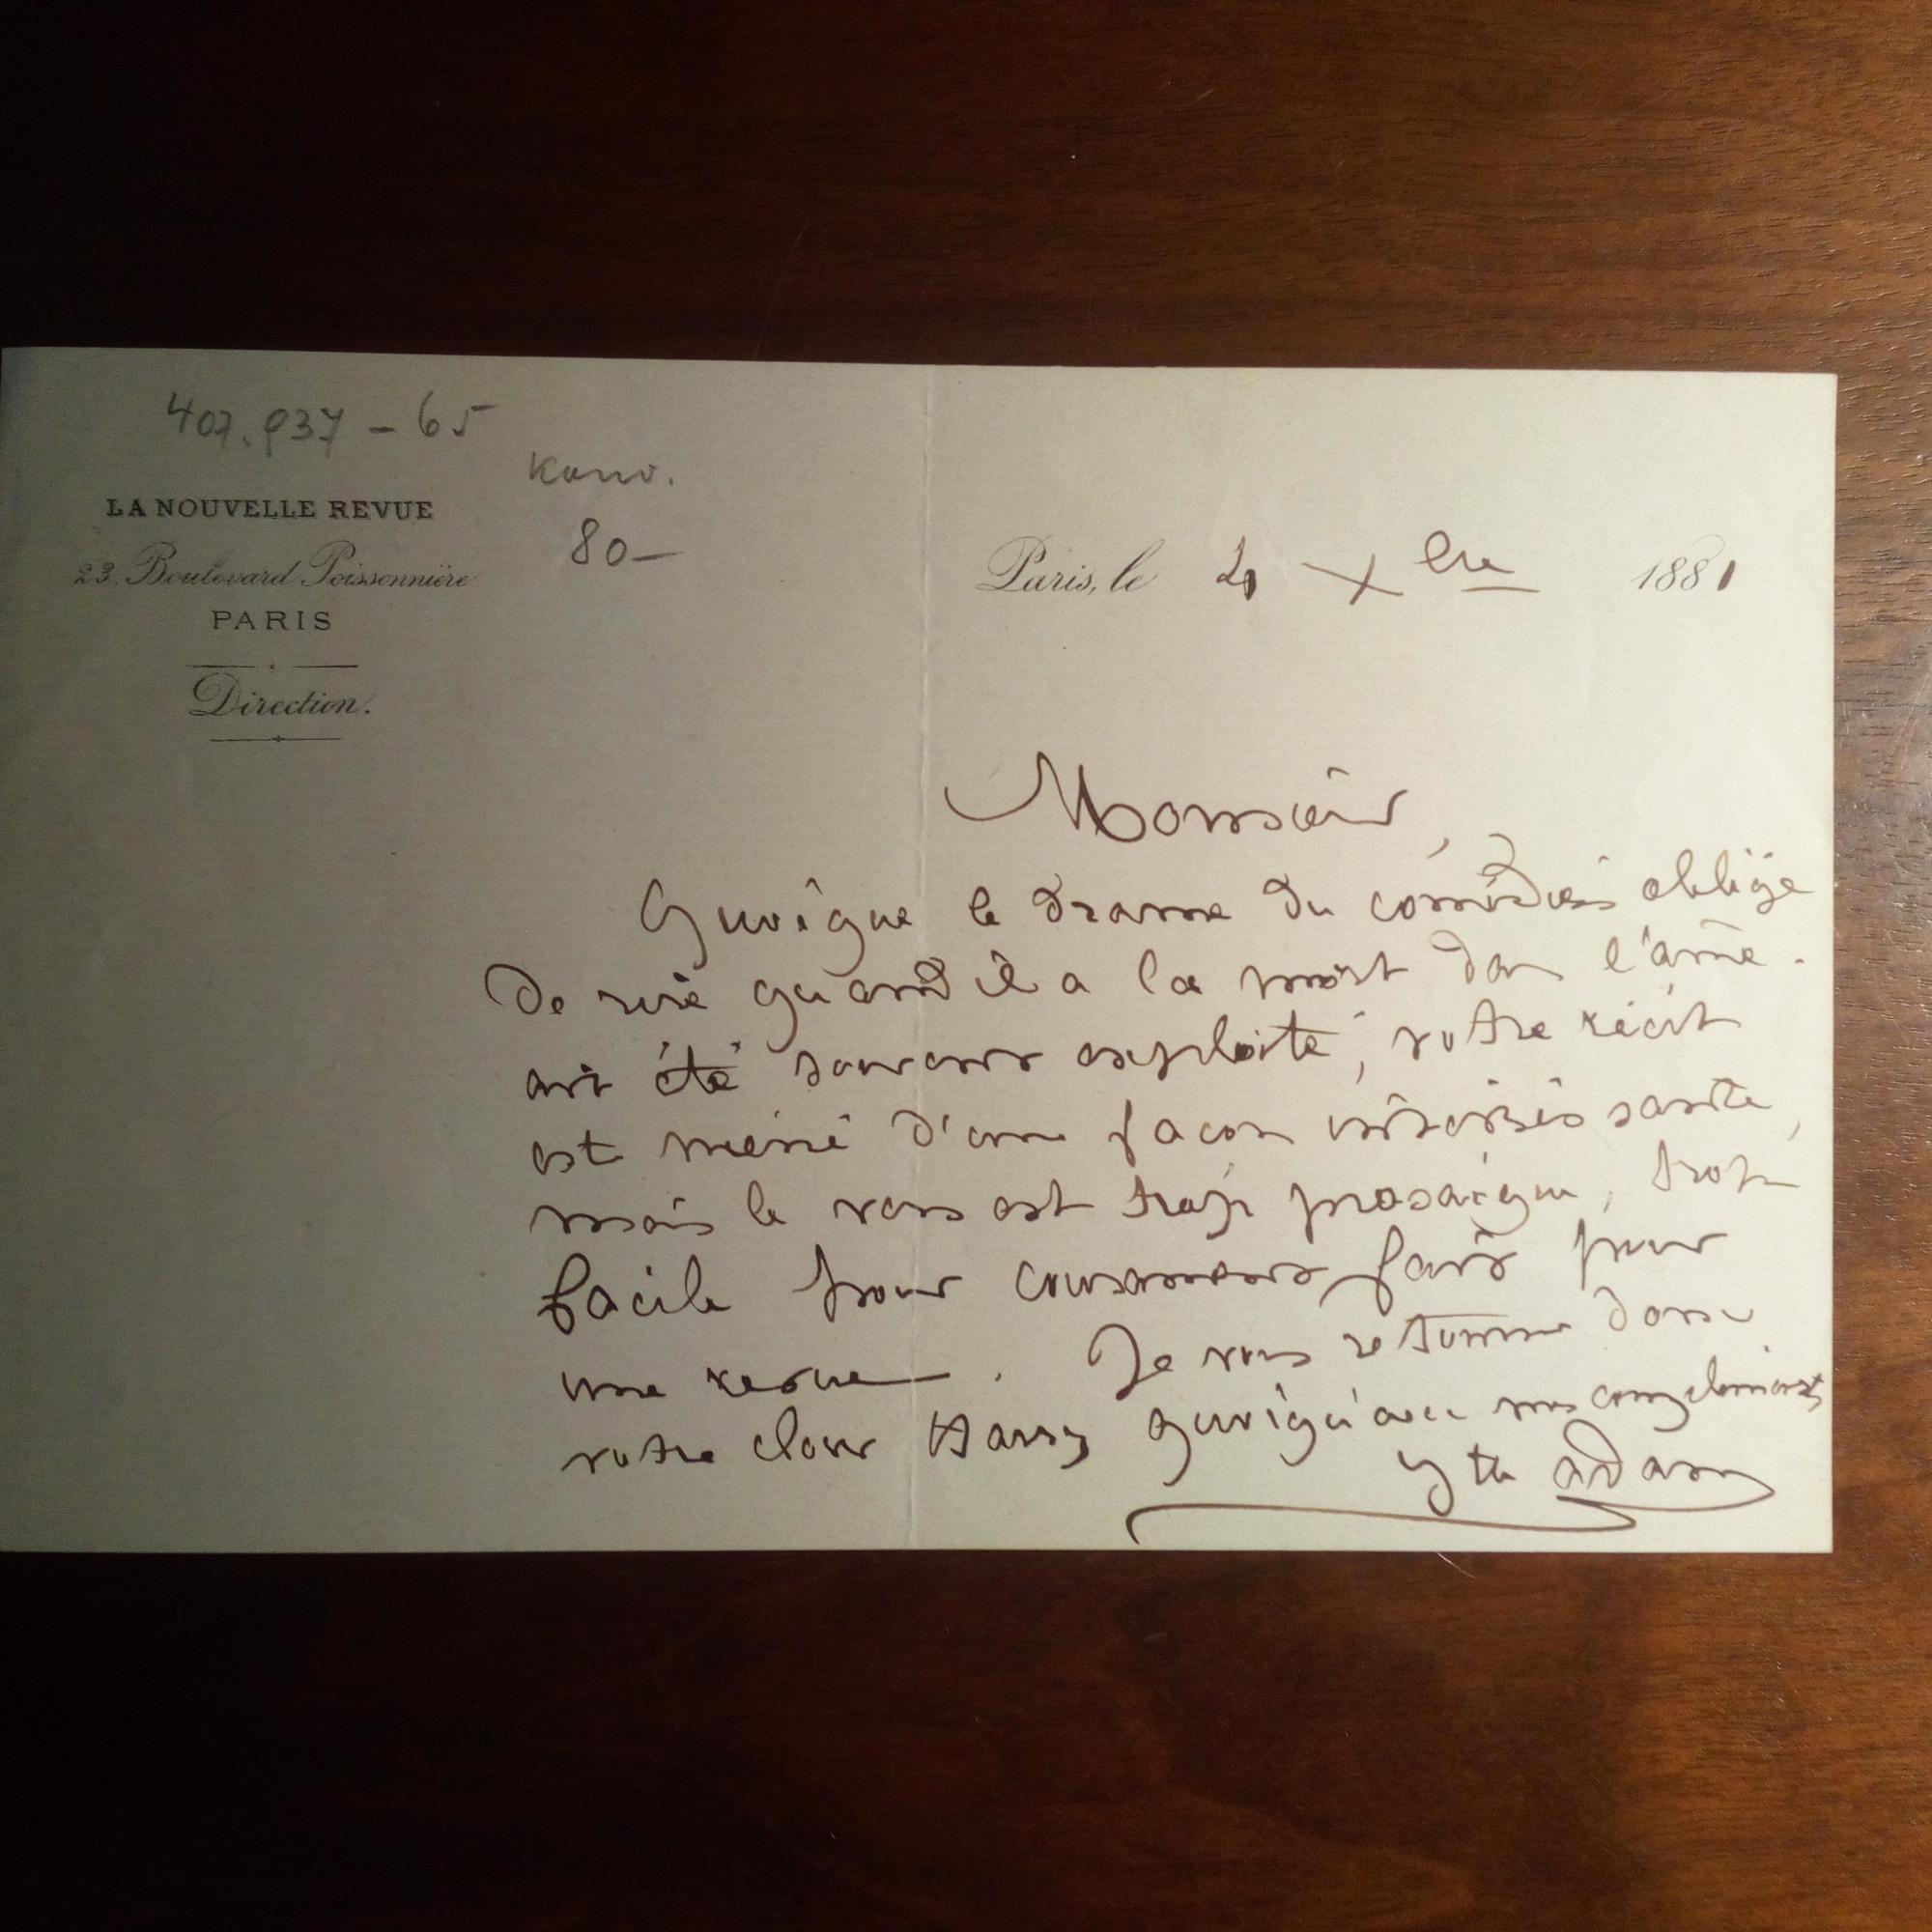 407.937 - 65
Konv.
80-
LA NOUVELLE REVUE
23, Boulevard Poissonnière
PARIS
Direction.
Paris, le 4 Xbre 1881
Monsieur,
Quoique le drame du comédien obligé
de rire quand il a la mort dans l'âme
ait été souvent exploité, votre récit
est mené d'une façon intéressante,
mais le vers est trop prosaïque, trop
facile pour
une revue. Je vous retourne donc
votre avec mes compliments
Jtte Adam